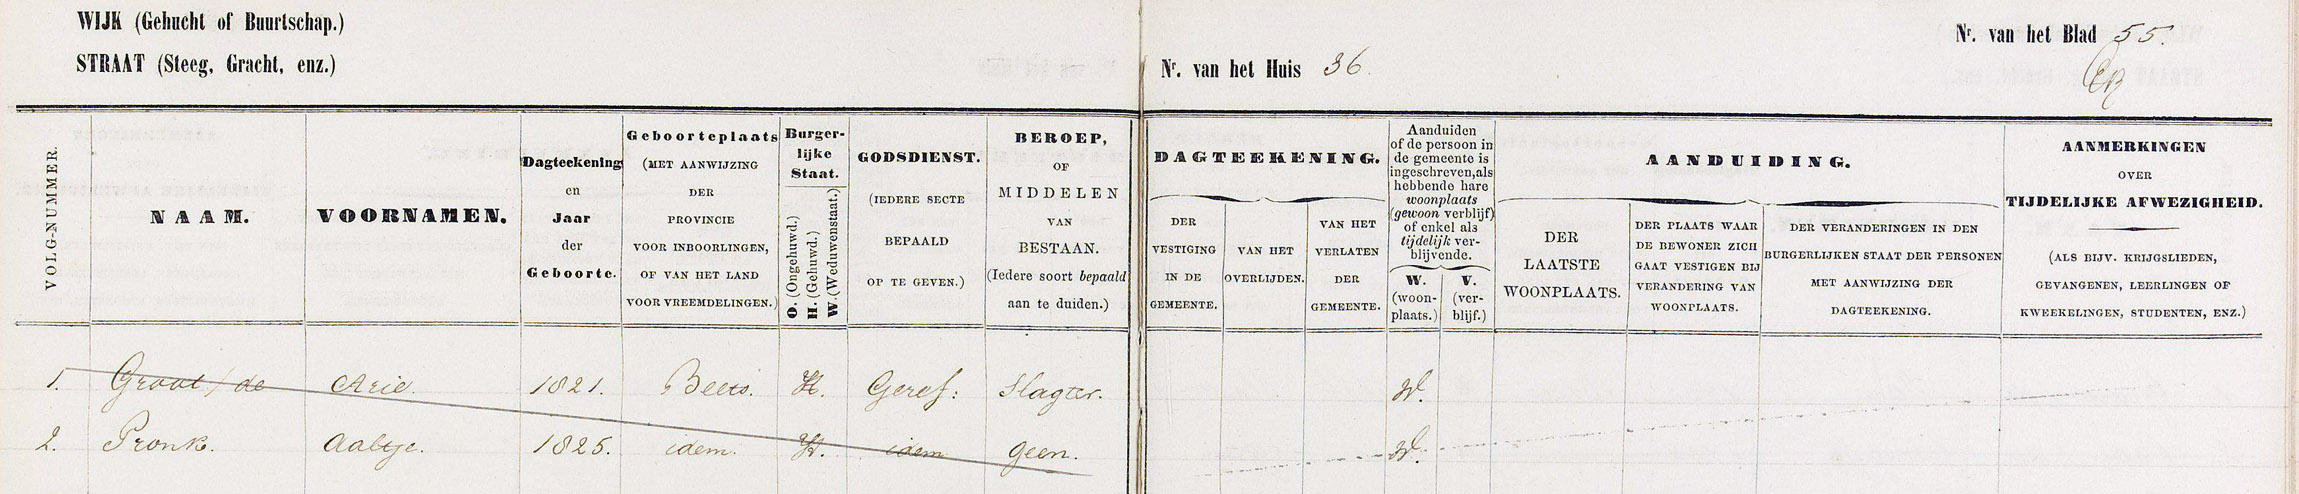 WIJK (Gehucht of Buurtschap.)
STRAAT (Steeg, Gracht, enz.)
Nr. van het Huis 36.
Nr. van het Blad 55.
VOLG-NUMMER.
NAAM.
VOORNAMEN.
Dagteekening
en
Jaar
der
Geboorte.
Geboorteplaats
(MET AANWIJZING
DER
PROVINCIE
VOOR INBOORLINGEN,
OF VAN HET LAND
VOOR VREEMDELINGEN.)
Burger-
lijke
Staat.
O. (Ongehuwd.)
H. (Gehuwd.)
W. (Weduwenstaat.)
GODSDIENST.
(IEDERE SECTE
BEPAALD
OP TE GEVEN.)
BEROEP,
OF
MIDDELEN
VAN
BESTAAN.
(Iedere soort bepaald
aan te duiden.)
DAGTEEKENING.
DER
VESTIGING
IN DE
GEMEENTE.
VAN HET
OVERLIJDEN.
VAN HET
VERLATEN
DER
GEMEENTE.
Aanduiden
of de persoon in
de gemeente is
ingeschreven, als
hebbende hare
woonplaats
(gewoon verblijf)
of enkel als
tijdelijk ver-
blijvende.
W.
(woon-
plaats.)
V.
(ver-
blijf.)
AANDUIDING.
DER
LAATSTE
WOONPLAATS.
DER PLAATS WAAR
DE BEWONER ZICH
GAAT VESTIGEN BIJ
VERANDERING VAN
WOONPLAATS.
DER VERANDERINGEN IN DEN
BURGERLIJKEN STAAT DER PERSONEN
MET AANWIJZING DER
DAGTEEKENING.
AANMERKINGEN
OVER
TIJDELIJKE AFWEZIGHEID.
(ALS BIJV. KRIJGSLIEDEN,
GEVANGENEN, LEERLINGEN OF
KWEEKELINGEN, STUDENTEN, ENZ.)
1. Groot / de Arie. 1821. Beets. H. Geref: Slagter. W.
2. Pronk. Aaltje. 1825. idem. H. idem geen. W.